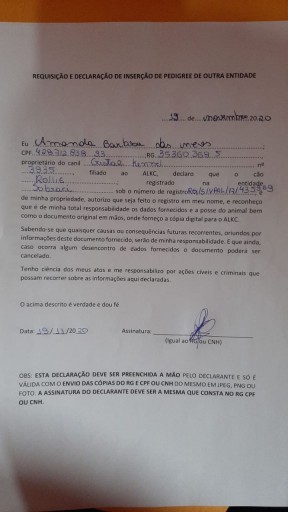 REQUISIÇÃO E DECLARAÇÃO DE INSERÇÃO DE PEDIGREE DE OUTRA ENTIDADE
19 de novembro 2020
Eu Amanda Barbosa das neves
CPF RG
proprietário do canil Kennel nº
3935 filiado ao ALKC, declaro que o cão
registrado na entidade
Sobraci sob o número de registro
de minha propriedade, autorizo que seja feito o registro em meu nome, e reconheço
que é de minha total responsabilidade os dados fornecidos e a posse do animal bem
como o documento original em mãos, onde forneço a cópia digital para o ALKC.
Sabendo-se que quaisquer causas ou consequências futuras recorrentes, oriundos por
informações deste documento fornecido, serão de minha responsabilidade. E que ainda,
caso ocorra algum desencontro de dados fornecidos o documento poderá ser
cancelado.
Tenho ciência dos meus atos e me responsabilizo por ações cíveis e criminais que
possam recorrer sobre as informações aqui declaradas.
O acima descrito é verdade e dou fé
Data: 19/11/2020 Assinatura:
(Igual ao RG ou CNH)
OBS: ESTA DECLARAÇÃO DEVE SER PREENCHIDA A MÃO PELO DECLARANTE E SÓ É
VÁLIDA COM O ENVIO DAS CÓPIAS DO RG E CPF OU CNH DO MESMO EM JPEG, PNG OU
FOTO. A ASSINATURA DO DECLARANTE DEVE SER A MESMA QUE CONSTA NO RG CPF
OU CNH.